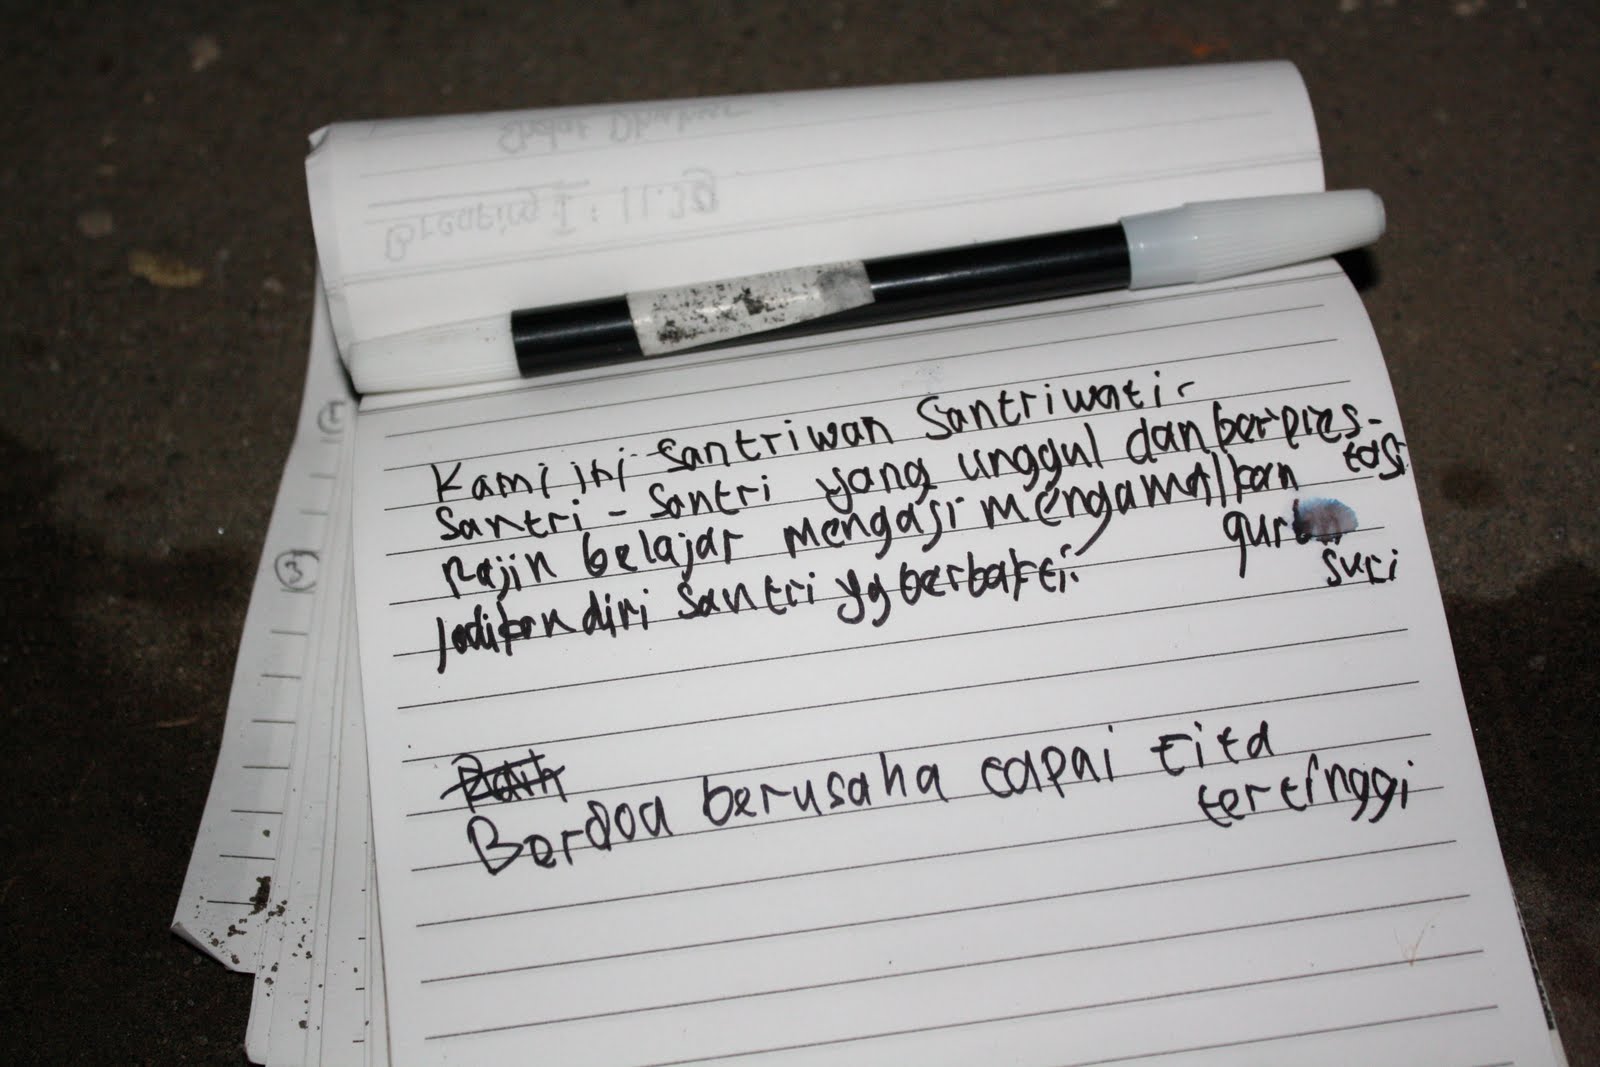 Kami ini santriwan santriwati
santri - santri yang unggul dan berpres-
tasi
rajin belajar mengaji mengamalkan
guru
suri
jadikan diri santri yg berbakti.
Berdoa berusaha capai cita
tertinggi